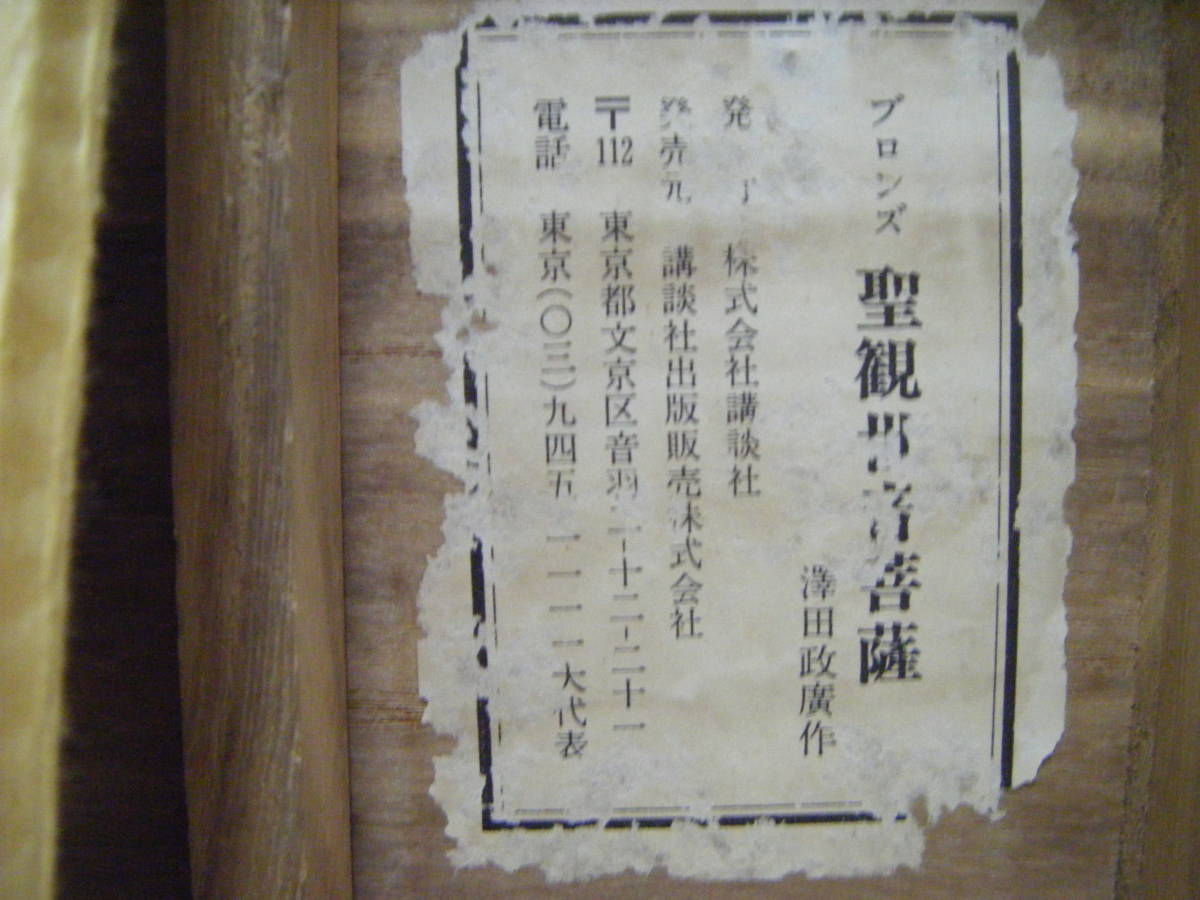 ブロンズ 聖観世音菩薩
澤田政廣作
発行 株式会社講談社
発売元 講談社出版販売株式会社
〒112 東京都文京区音羽二-十二-二十一
電話 東京(〇三)九四五 一一一一大代表